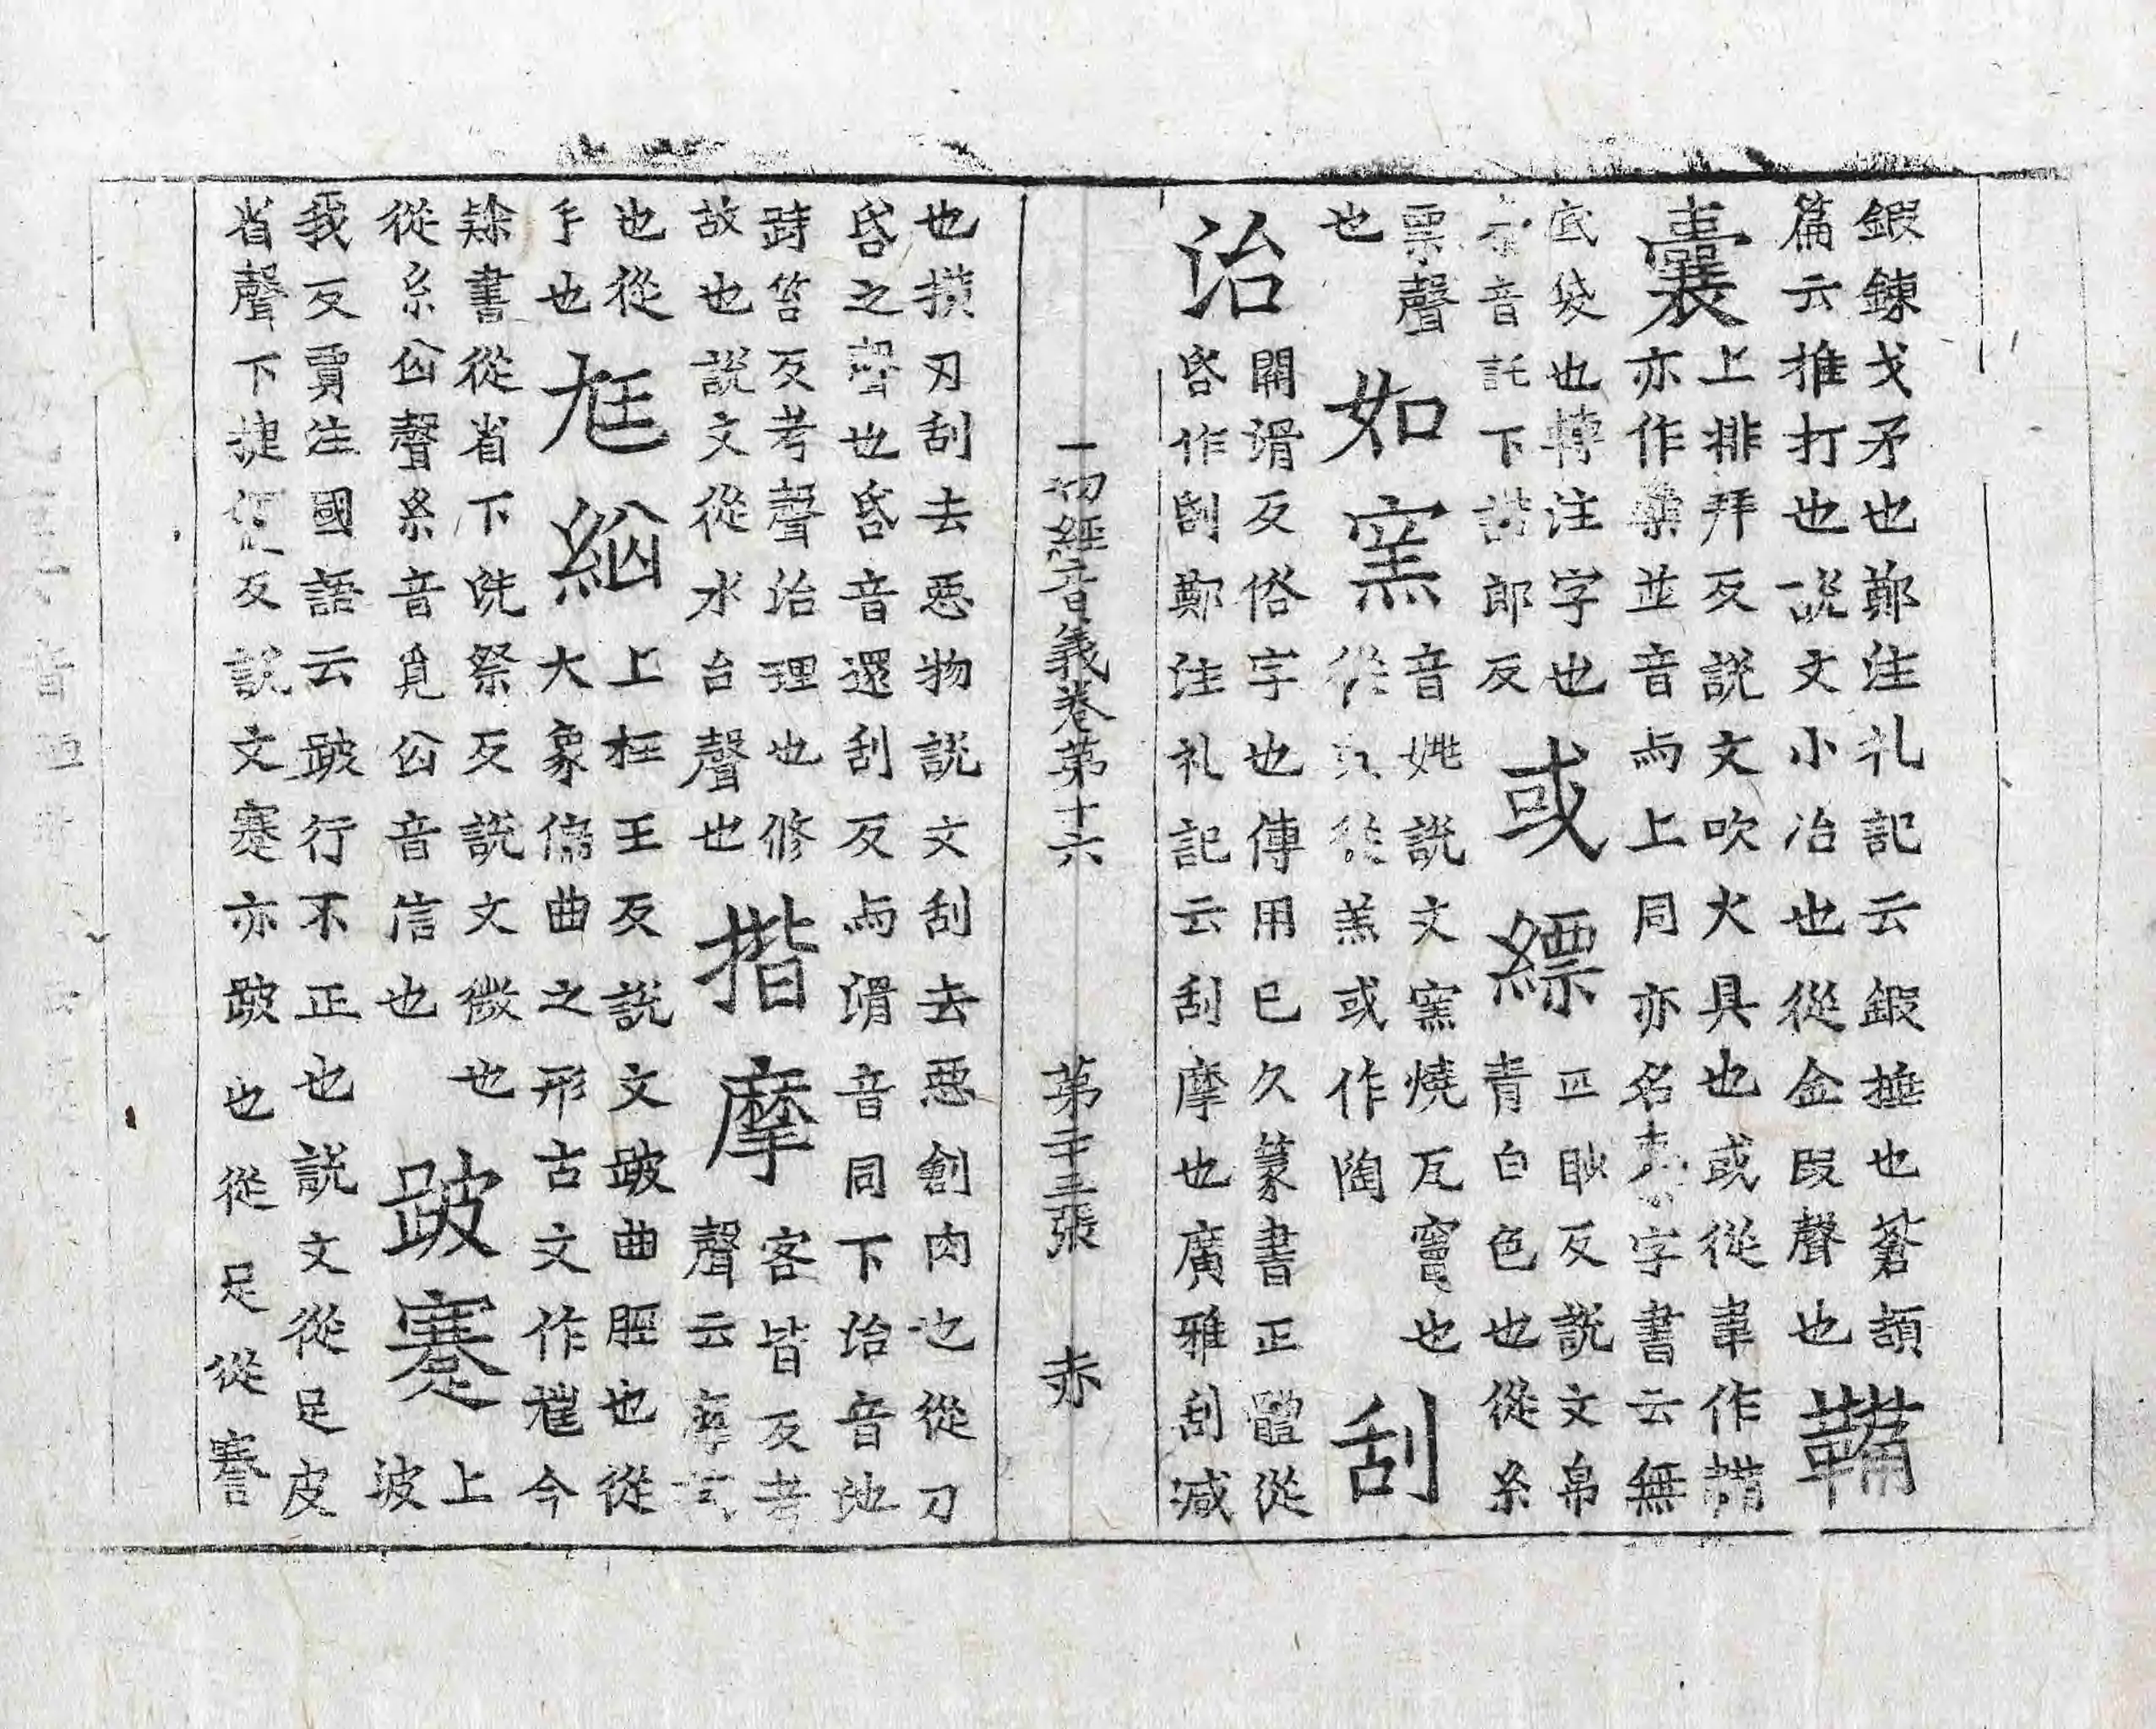 鍜鍊戈矛也鄭注礼記云鍜捶也蒼頡
篇云推打也說文小冶也從金叚聲也鞴
囊上排拜反說文吹火具也或從韋作𩋾
亦作橐並音与上同亦名字書云無
底袋也轉注字也或縹匹眇反說文帛
音託下諾郎反青白色也從糸
票聲如窯音姚說文窯燒瓦竈也刮
也從穴從羔或作陶
治關滑反俗字也傳用已久篆書正體從
㫪作㓤鄭注礼記云刮摩也廣雅刮減
一切經音義卷第十六 第二十三張 赤
也摸刃刮去惡物說文刮去惡創肉也從刀
㫪之聲也㫪音還刮反与滑音同下治音地
跱笞反考聲治理也修揩摩客皆反考
故也說文從水台聲也聲云摩
也從尩綗上枉王反說文跛曲脛也從
手也大象偏曲之形古文作𡯥今
隸書從省下洗祭反說文微也跛蹇上
從糸囟聲糸音覓囟音信也波
我反賈注國語云跛行不正也說文從足皮
省聲下揵偃反說文蹇亦跛也從足從謇